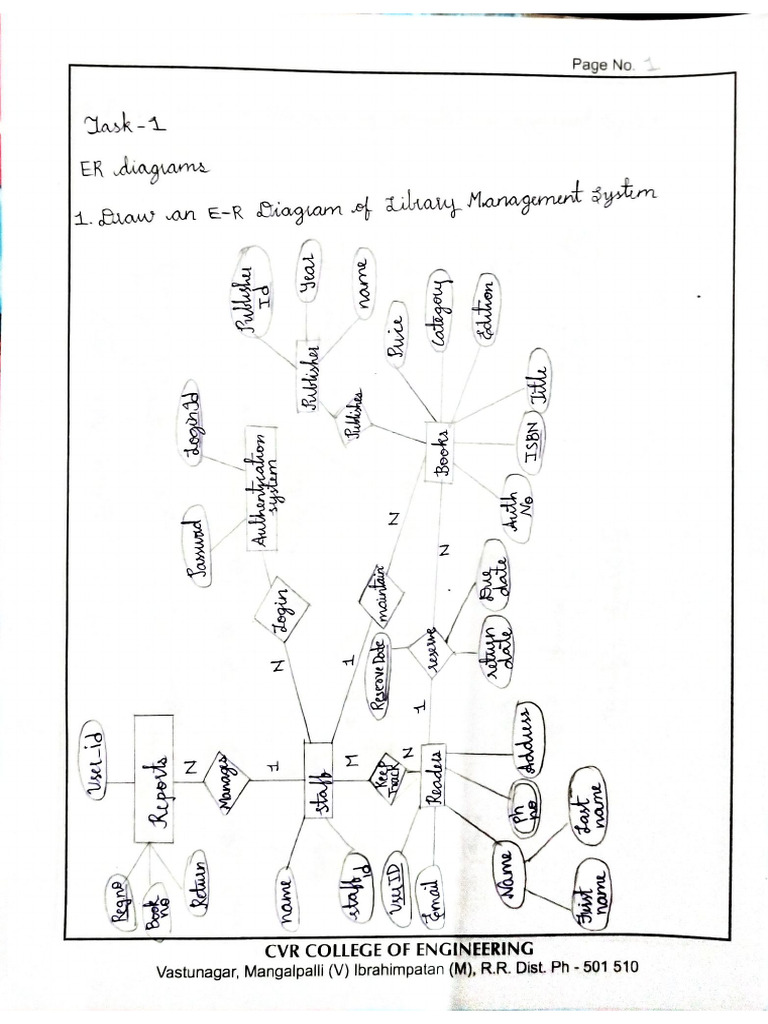 Page No. 1
Task-1
ER diagrams
1. Draw an E-R Diagram of Library Management System
Publisher
Id
Year
name
Publisher
Publishes
Price
Category
Edition
Title
ISBN
Auth
No
Books
Login Id
Password
Authentication
system
Login
N
N
maintain
1
N
Reserve Date
reserve
Due
date
return
date
1
User_id
Reports
Regno
Book
no
Return
N
Manages
1
Staff
name
staff
id
M
Keep
Track
N
Readers
User ID
Email
Name
First
name
Last
name
Ph
no
Address
CVR COLLEGE OF ENGINEERING
Vastunagar, Mangalpalli (V) Ibrahimpatan (M), R.R. Dist. Ph - 501 510